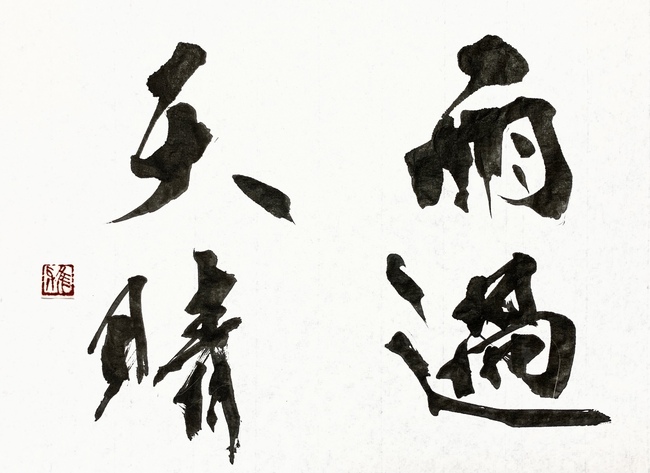 雨過
天晴